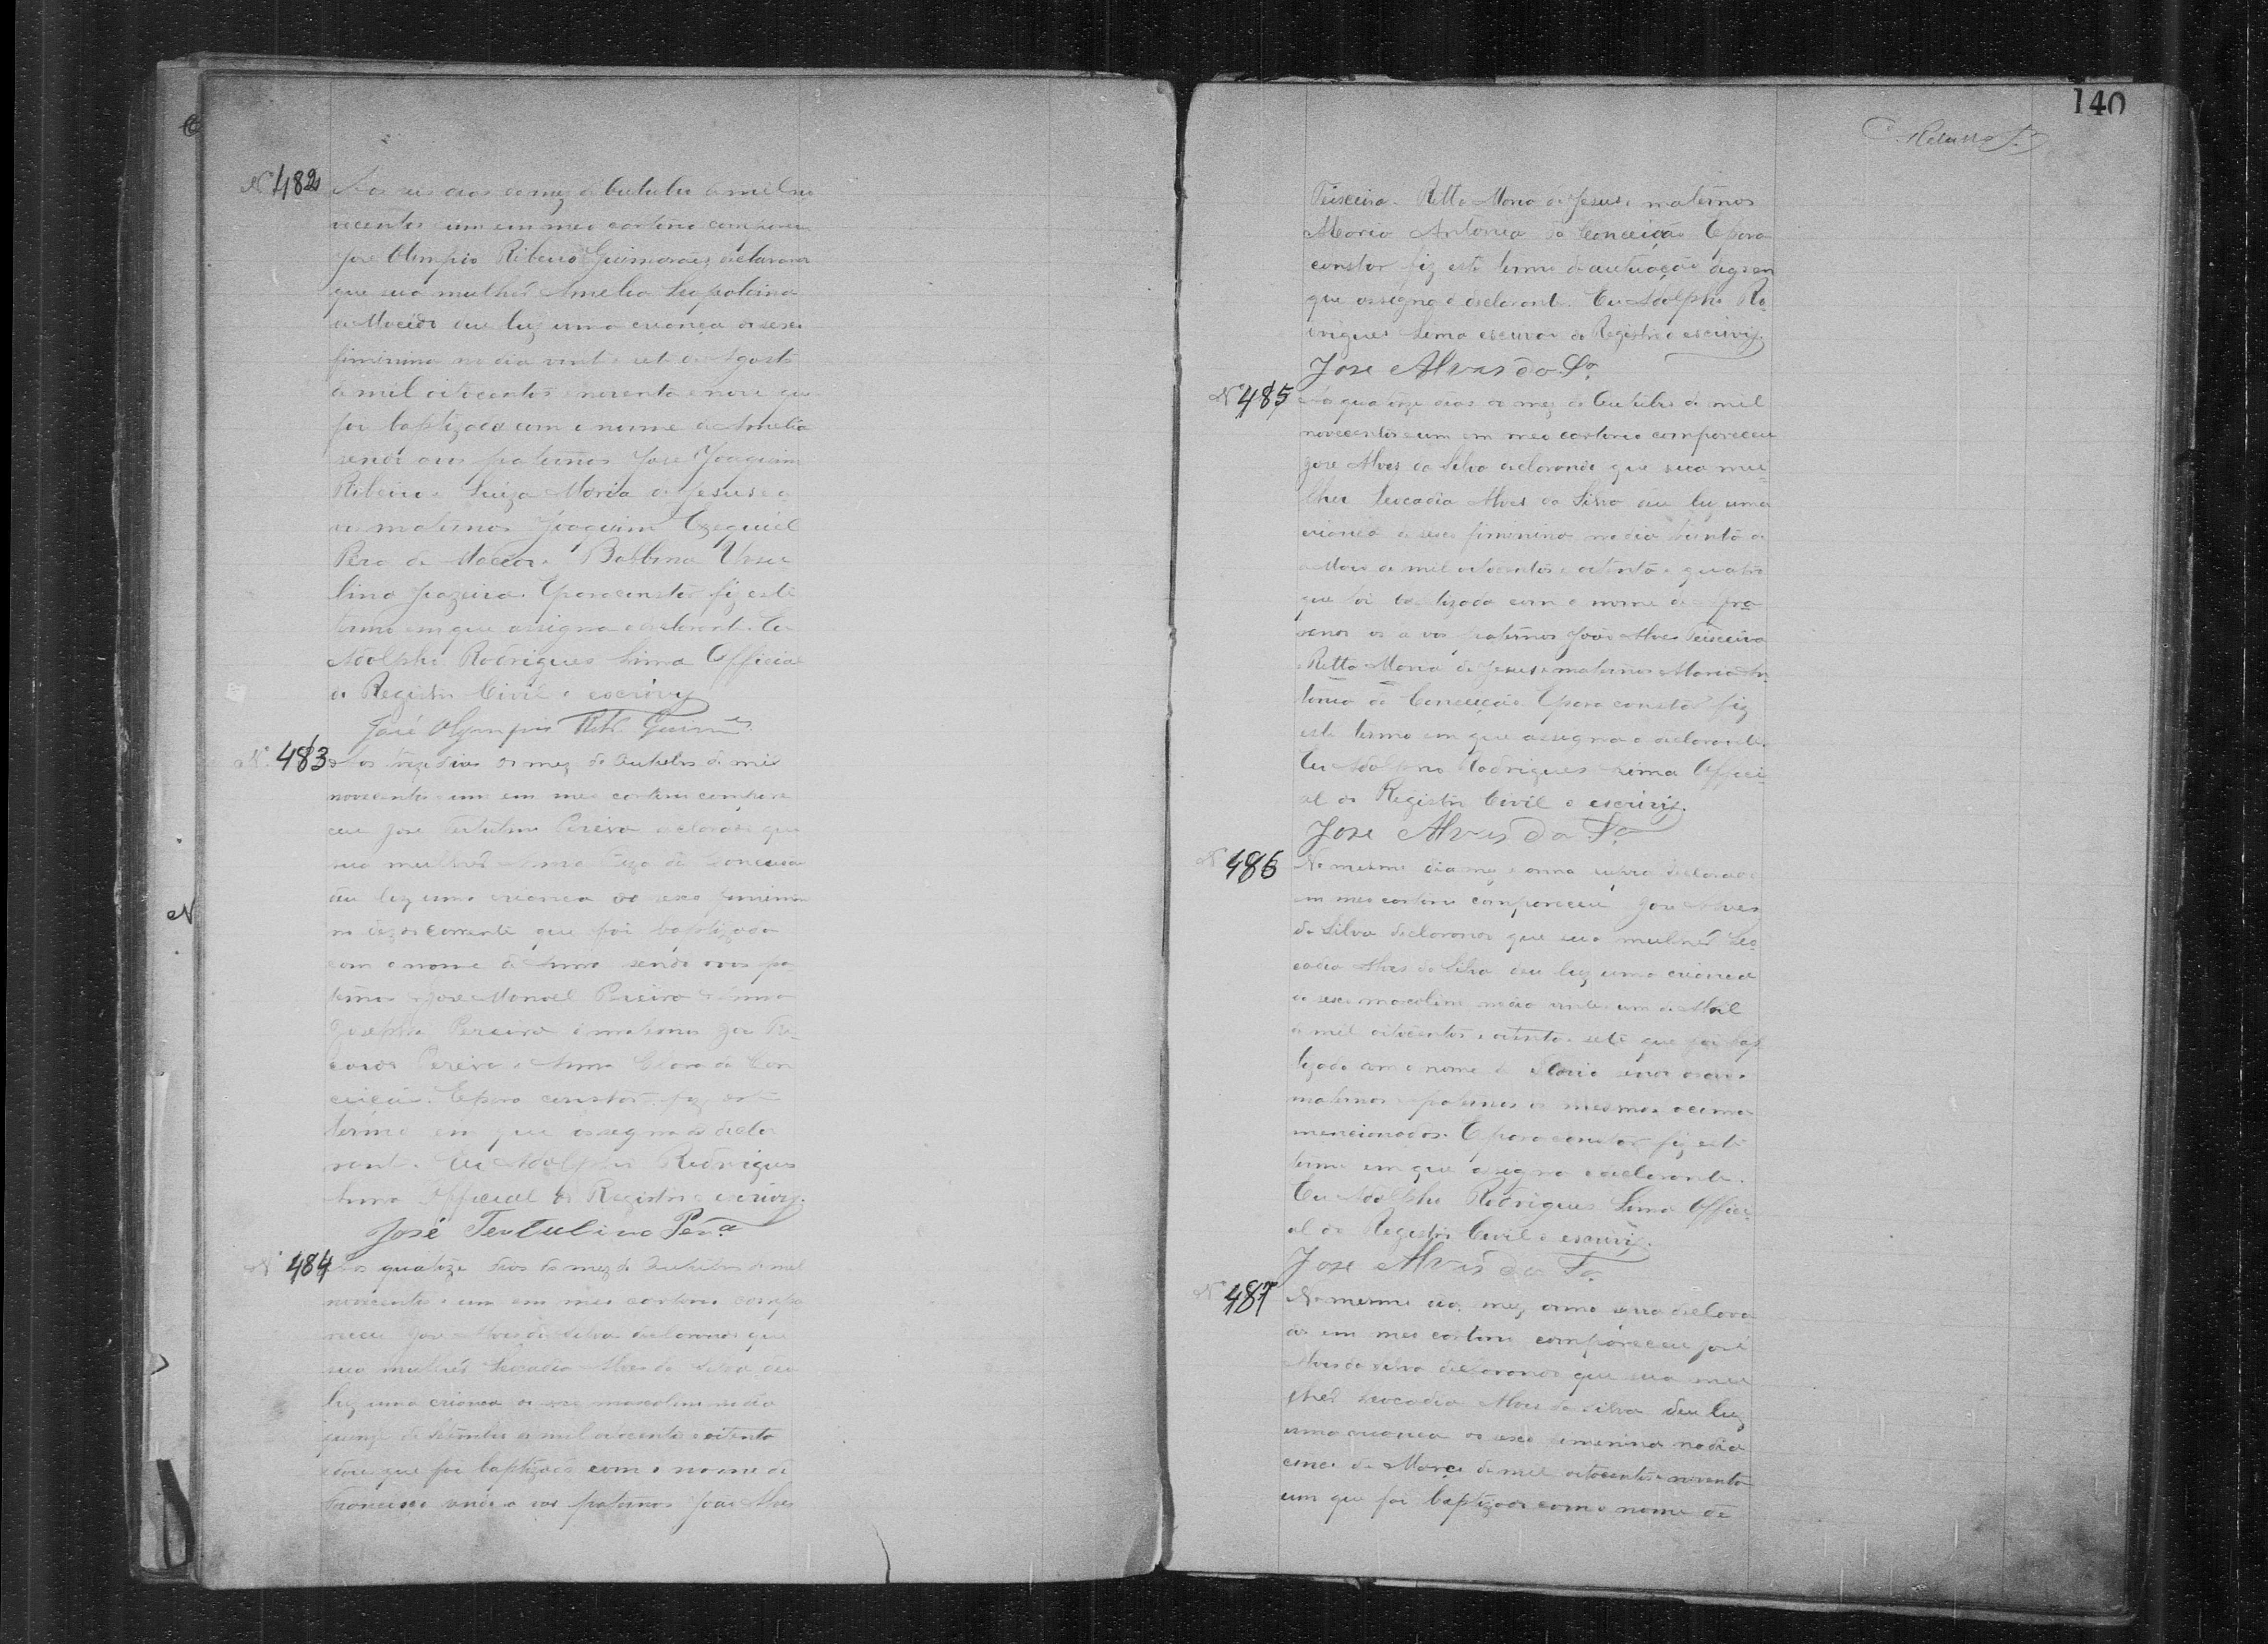 N 482
Aos seis dias do mez de Outubro de mil no
vecentos e um em meo cartorio compareceu
Jose Olimpio Ribeiro Guimarães, declarando
que sua mulher Amelia Leopoldina
de Macedo deu luz uma criança do sexo
feminino no dia vinte e sete de Agosto
de mil oitocentos e noventa e nove que
foi baptizada com o nome de Amelia
sendo avos paternos Jose Joaquim
Ribeiro e Luiza Maria de Jesus e a
vos maternos Joaquim Ezequiel
de Macedo e Balbina Ursu
lina E para constar fiz este
termo em que assigna o declarante. Eu
Adolpho Rodrigues Lima Official
do Registro Civil o escrivy
José Olympio Ribr. Guimes.
N. 483
Aos treze dias do mez de Outubro de mil
novecentos e um em meo cartorio compare
ceu Jose Tertulino Pereira declarado que
sua mulher da Conceicão
deu luz uma criança do sexo feminino
no dez do corrente que foi baptizada
com o nome de Anna sendo avos pa
ternos Jose Manoel Pereira e Anna
Josepha Pereira e maternos
Pereira e Anna Clara da Con
ceição. E para constar fiz este
termo em que assigna o decla
rante. Eu Adolpho Rodrigues
Lima Official do Registro o escrivy.
José Tertulino Pera
N 484
Aos quatorze dias do mez de Outubro de mil
novecentos e um em meo cartorio compa
receu Jose Alves da Silva declarando que
sua mulher Leocadia Alves da Silva deu
luz uma criança do sexo masculino no dia
quinze de Setembro de mil oitocentos e oitenta
e dois que foi baptizado com o nome de
Francisco sendo a vos paternos João Alves
140
Teixeira e Ritta Maria de Jesus e maternos
Maria Antonia da Conceição E para
constar fiz este termo de
que assigna o declarante. Eu Adolpho Ro
drigues Lima escrivão do Registro o escrivy.
Jose Alves da Sa
N 485
Aos quatorze dias do mez de Outubro de mil
novecentos e um em meo cartorio compareceu
Jose Alves da Silva declarando que sua mu
lher Leocadia Alves da Silva deu luz uma
criança do sexo feminino no dia trinta de
Maio de mil oitocentos e oitenta e quatro
que foi baptizada com o nome de
os a vos paternos João Alves Teixeira
e Ritta Maria de Jesus e maternos Maria An
tonia da Conceição E para constar fiz
este termo em que assigna o declarante.
Eu Adolpho Rodrigues Lima Offici
al do Registro Civil o escrivy.
Jose Alves da Sa
N 486
No mesmo dia mez e anno supra declarado
em meo cartorio compareceu Jose Alves
da Silva declarando que sua mulher Leo
cadia Alves da Silva deu luz uma criança
do sexo masculino no dia vinte e um de Abril
de mil oitocentos e oitenta e sete que foi bap
tizado com o nome de sendo os avos
maternos e paternos os mesmos acima
mencionados. E para constar fiz este
termo em que assigna o declarante.
Eu Adolpho Rodrigues Lima Offici
al do Registro Civil o escrivy.
Jose Alves da Sa
N 487
No mesmo dia, mez, anno supra declara
do em meo cartorio compareceu José
Alves da Silva declarando que sua mu
lher Leocadia Alves da Silva deu luz
uma criança do sexo feminino no dia
cinco de Março de mil oitocentos e noventa
um que foi baptizada com o nome de